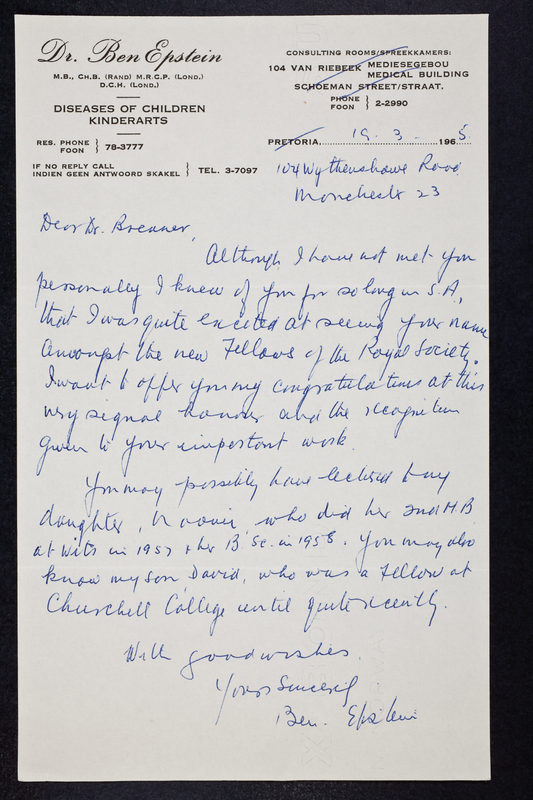 Dr. Ben Epstein
M.B., Ch.B. (Rand) M.R.C.P. (Lond.)
D.C.H. (Lond.)
DISEASES OF CHILDREN
KINDERARTS
RES. PHONE
FOON } 78-3777
IF NO REPLY CALL
INDIEN GEEN ANTWOORD SKAKEL } TEL. 3-7097
CONSULTING ROOMS/SPREEKKAMERS:
104 VAN RIEBEEK MEDIESEGEBOU
MEDICAL BUILDING
SCHOEMAN STREET/STRAAT.
PHONE
FOON } 2-2990
PRETORIA, 19. 3. 1965
104 Wythenshawe Road
Manchester 23
Dear Dr. Brenner,
Although I have not met you
personally I knew of you for so long in S.A.,
that I was quite excited at seeing your name
amongst the new Fellows of the Royal Society.
I want to offer you my congratulations at this
very signal honour and the recognition
given to your important work.
You may possibly have lectured to my
daughter, who did her 2nd M B
at Wits in 1957 & her B Sc. in 1958. You may also
know my son David, who was a Fellow at
Churchill College until quite recently.
With good wishes.
Yours Sincerely
Ben. Epstein